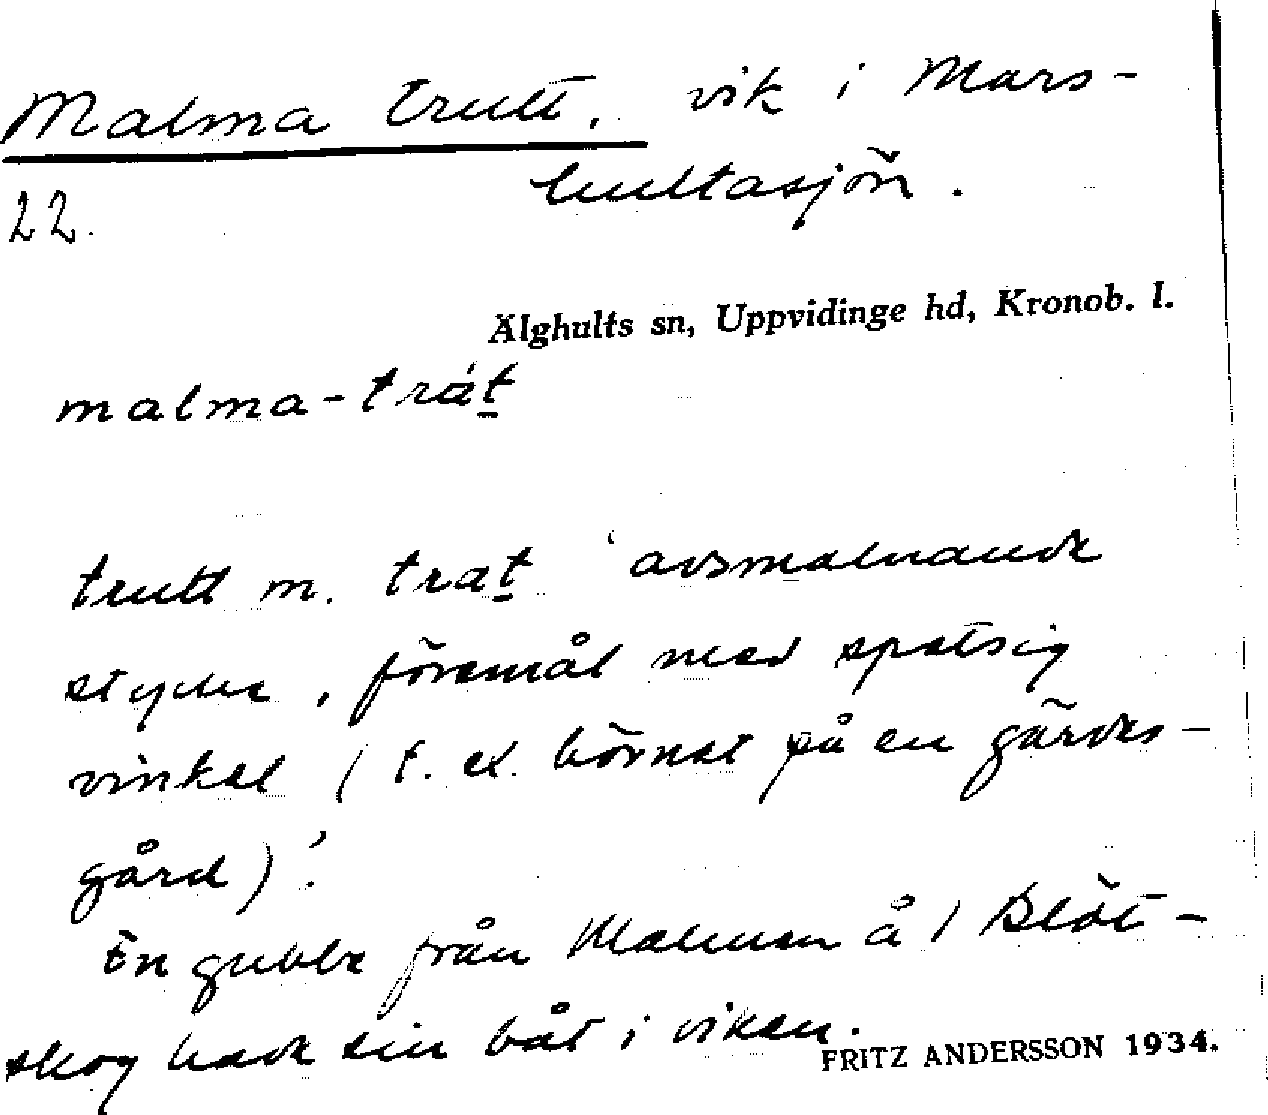 Malma trutt, vik i Mars-
hultasjön.
22.
Älghults sn, Uppvidinge hd, Kronob. l.
malma-tråt
trutt m. trat 'avsmalnande
stycke, föremål med spetsig
vinkel (t. ex. hörnet på en gärdes-
gård)'.
En gubbe från Malmen å / Slät-
skog hade sin båt i viken.
FRITZ ANDERSSON 1934.